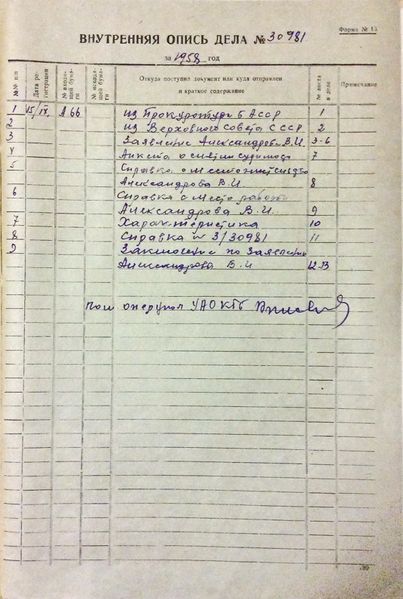 Форма № 15
ВНУТРЕННЯЯ ОПИСЬ ДЕЛА № 30981
за 1958 год
№№ п/п
Дата регистрации
№ входящей бумаги
№ исходящей бумаги
Откуда поступил документ или куда отправлен и краткое содержание
№ листа в деле
Примечание
1 15/IV. А 66 из Прокуратуры БАССР 1
2 из Верховного Совета СССР 2
3 Заявление Александрова В.И. 3-6
4 Анкета о снятии судимости 7
5 Справка о местожительстве
Александрова В.И 8
6 Справка о месте работы
Александрова В.И. 9
7 Характеристика 10
8 Справка № 3/30981 11
9 Заключение по Заявлению
Александрова В.И 12-13
пом опер УАО КГБ